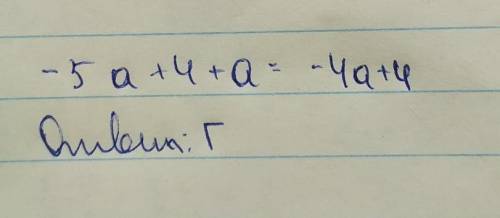 -5a+4+a= -4a+4
Ответ: Г